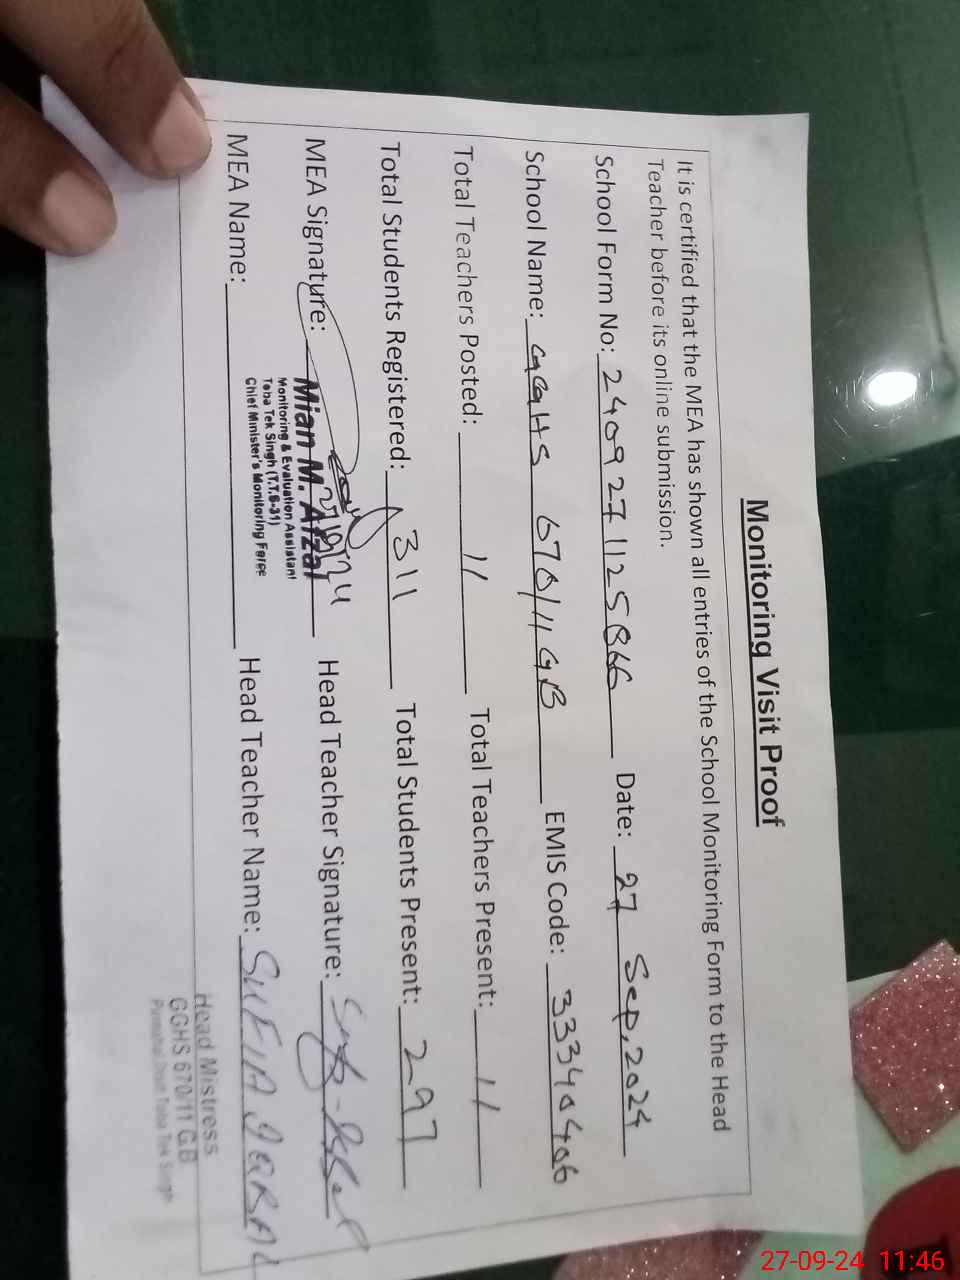 Monitoring Visit Proof
It is certified that the MEA has shown all entries of the School Monitoring Form to the Head
Teacher before its online submission.
School Form No: 2409271125866 Date: 27 Sep, 2024
School Name: GGHS 670/11 GB EMIS Code: 33340406
Total Teachers Posted: 11 Total Teachers Present: 11
Total Students Registered: 311 Total Students Present: 297
MEA Signature: Head Teacher Signature:
27/9/24
Mian M. Afzal
Monitoring & Evaluation Assistant
Toba Tek Singh (T.T.S-31)
Chief Minister's Monitoring Force
MEA Name: Head Teacher Name: SUFIA
Head Mistress
GGHS 670/11 G.B
Toba Tek Singh
27-09-24 11:46